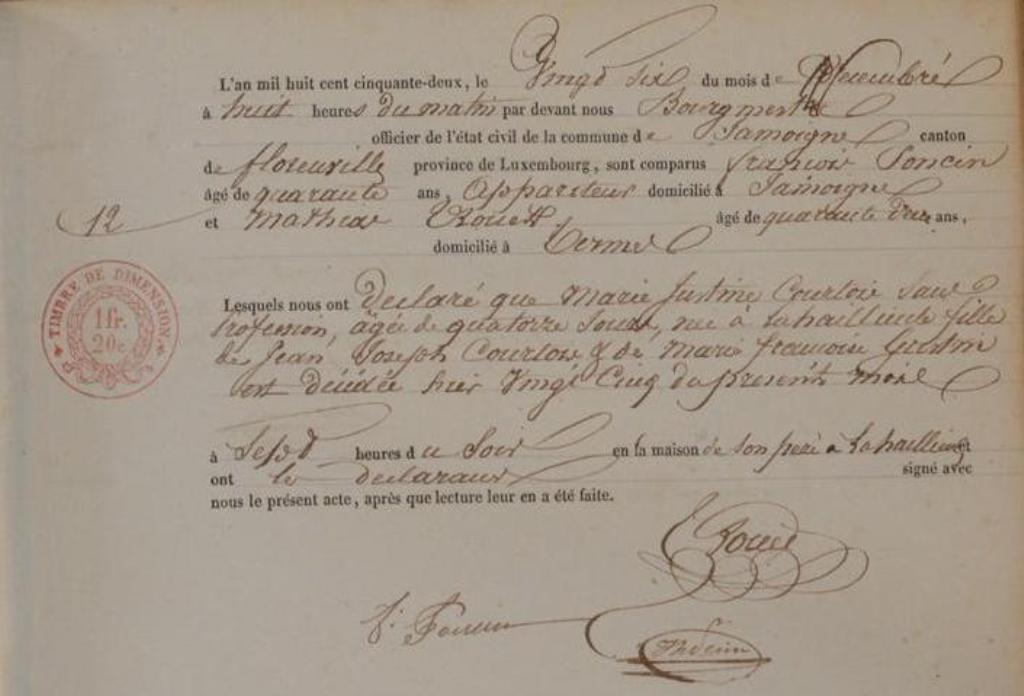 L'an mil huit cent cinquante-deux, le Vingt Six du mois de Décembre
à huit heures du matin par devant nous Bourgmestre
officier de l'état civil de la commune de Jamoigne canton
de florenville province de Luxembourg, sont comparus françois Poncin
âgé de quarante ans, Appariteur domicilié à Jamoigne
12
et Mathieu Rouet âgé de quarante deux ans,
domicilié à Termes
TIMBRE DE DIMENSION
1 fr.
20c
Lesquels nous ont Declaré que Marie Justine Courtois Sans
profession, agée de quatorze Jours, née à Lahaillieule fille
de Jean Joseph Courtois & de Marie francoise
est décédée hier Vingt Cinq du present mois
à Sept heures du Soir en la maison de son pere à Lahaillieule et
ont le declarant signé avec
nous le présent acte, après que lecture leur en a été faite.
Rouet
f. Poncin